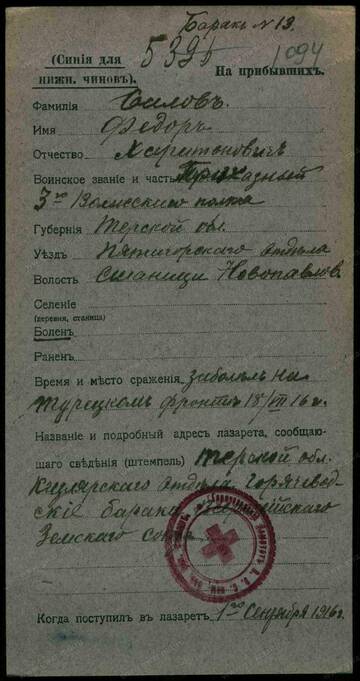 Баракъ N 13.
(Синія для
нижн. чиновъ).
5395
1094
На прибывшихъ.
Фамилія Силовъ.
Имя Федоръ
Отчество Харитоновичъ
Воинское званіе и часть Приказный
3го Волгскаго полка
Губернія Терской обл.
Уѣздъ Пятигорскаго отдѣла
Волость Станицы Новопавлов.
Селеніе
(деревня, станица)
Боленъ
Раненъ
Время и мѣсто сраженія заболѣлъ на
турецкомъ фронтѣ 18/VII 16 г.
Названіе и подробный адресъ лазарета, сообщаю-
щаго свѣдѣнія (штемпель) Терской обл.
Кизлярскаго отдѣла Горячевод-
скіе бараки Всероссійскаго
Земскаго союза
Когда поступилъ въ лазаретъ 1го Сентября 1916 г.